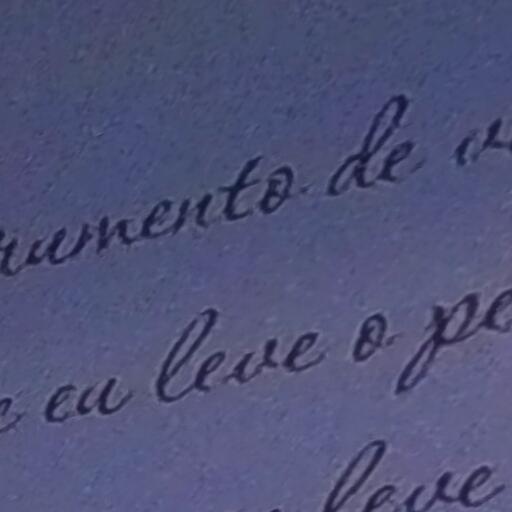 rumento de
eu leve o pe
leve